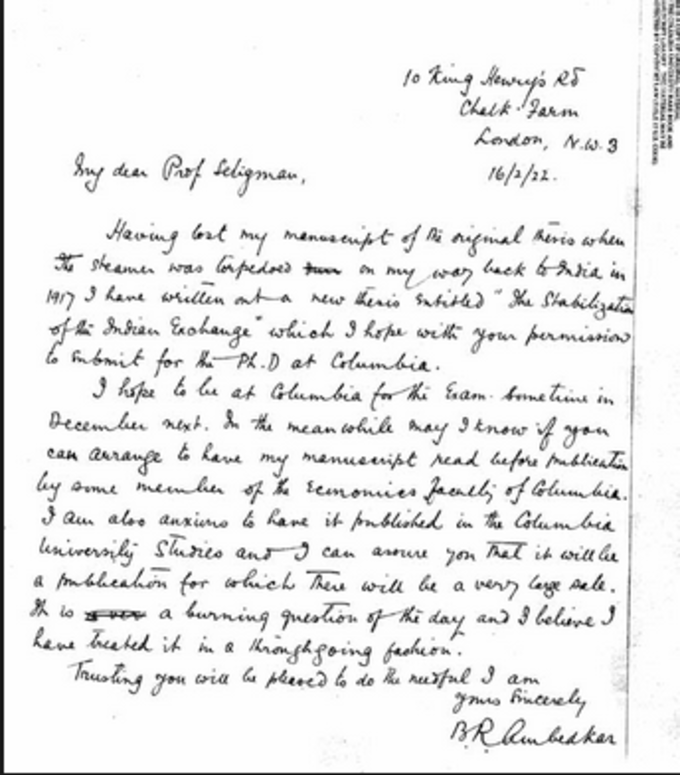 10 King Henry's Rd
Chalk Farm
London, N.W. 3
16/2/22.
My dear Prof Seligman,
Having lost my manuscript of the original thesis when
the steamer was torpedoed on my way back to India in
1917 I have written out a new thesis entitled "The Stabilization
of the Indian Exchange" which I hope with your permission
to submit for the Ph.D at Columbia.
I hope to be at Columbia for the Exam. sometime in
December next. In the meanwhile may I know if you
can arrange to have my manuscript read before publication
by some member of the Economics faculty of Columbia.
I am also anxious to have it published in the Columbia
University Studies and I can assure you that it will be
a publication for which there will be a very large sale.
It is a burning question of the day and I believe I
have treated it in a throughgoing fashion.
Trusting you will be pleased to do the needful I am
yours Sincerely
B.R. Ambedkar